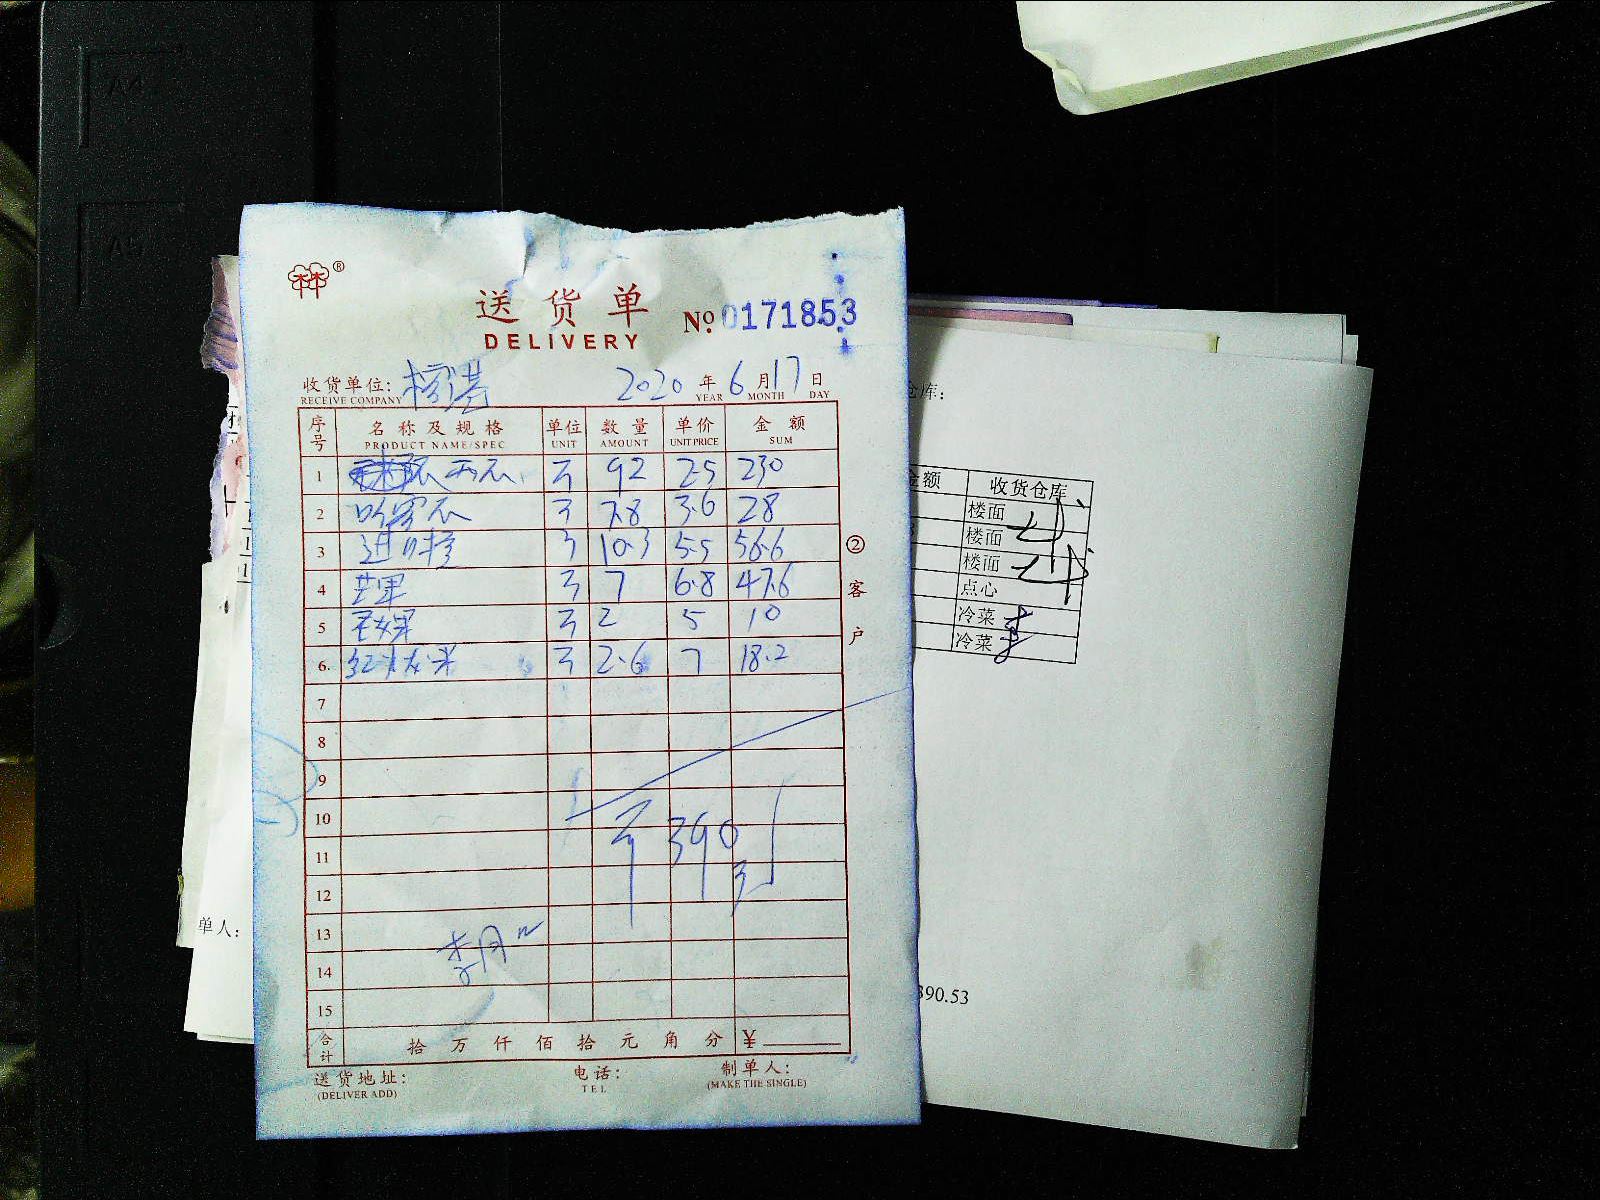 A4
A5
®
送货单
DELIVERY
No. 0171853
收货单位:
RECEIVE COMPANY
2020 年 6 月 17 日
YEAR MONTH DAY
序号 名称及规格 单位 数量 单价 金额
PRODUCT NAME/SPEC UNIT AMOUNT UNIT PRICE SUM
1 西瓜 斤 92 2.5 230
2 哈密瓜 斤 7.8 3.6 28
3 进口橙 斤 10.3 5.5 56.6
4 芒果 斤 7 6.8 47.6
5 斤 2 5 10
6. 红火龙果 斤 2.6 7 18.2
7
8
9
10
11
12
13
14
15
390
合计 拾 万 仟 佰 拾 元 角 分 ¥
送货地址: 电话: 制单人:
(DELIVER ADD) TEL (MAKE THE SINGLE)
② 客户
仓库:
金额 收货仓库
楼面
楼面
楼面
点心
冷菜
冷菜
390.53
单人: